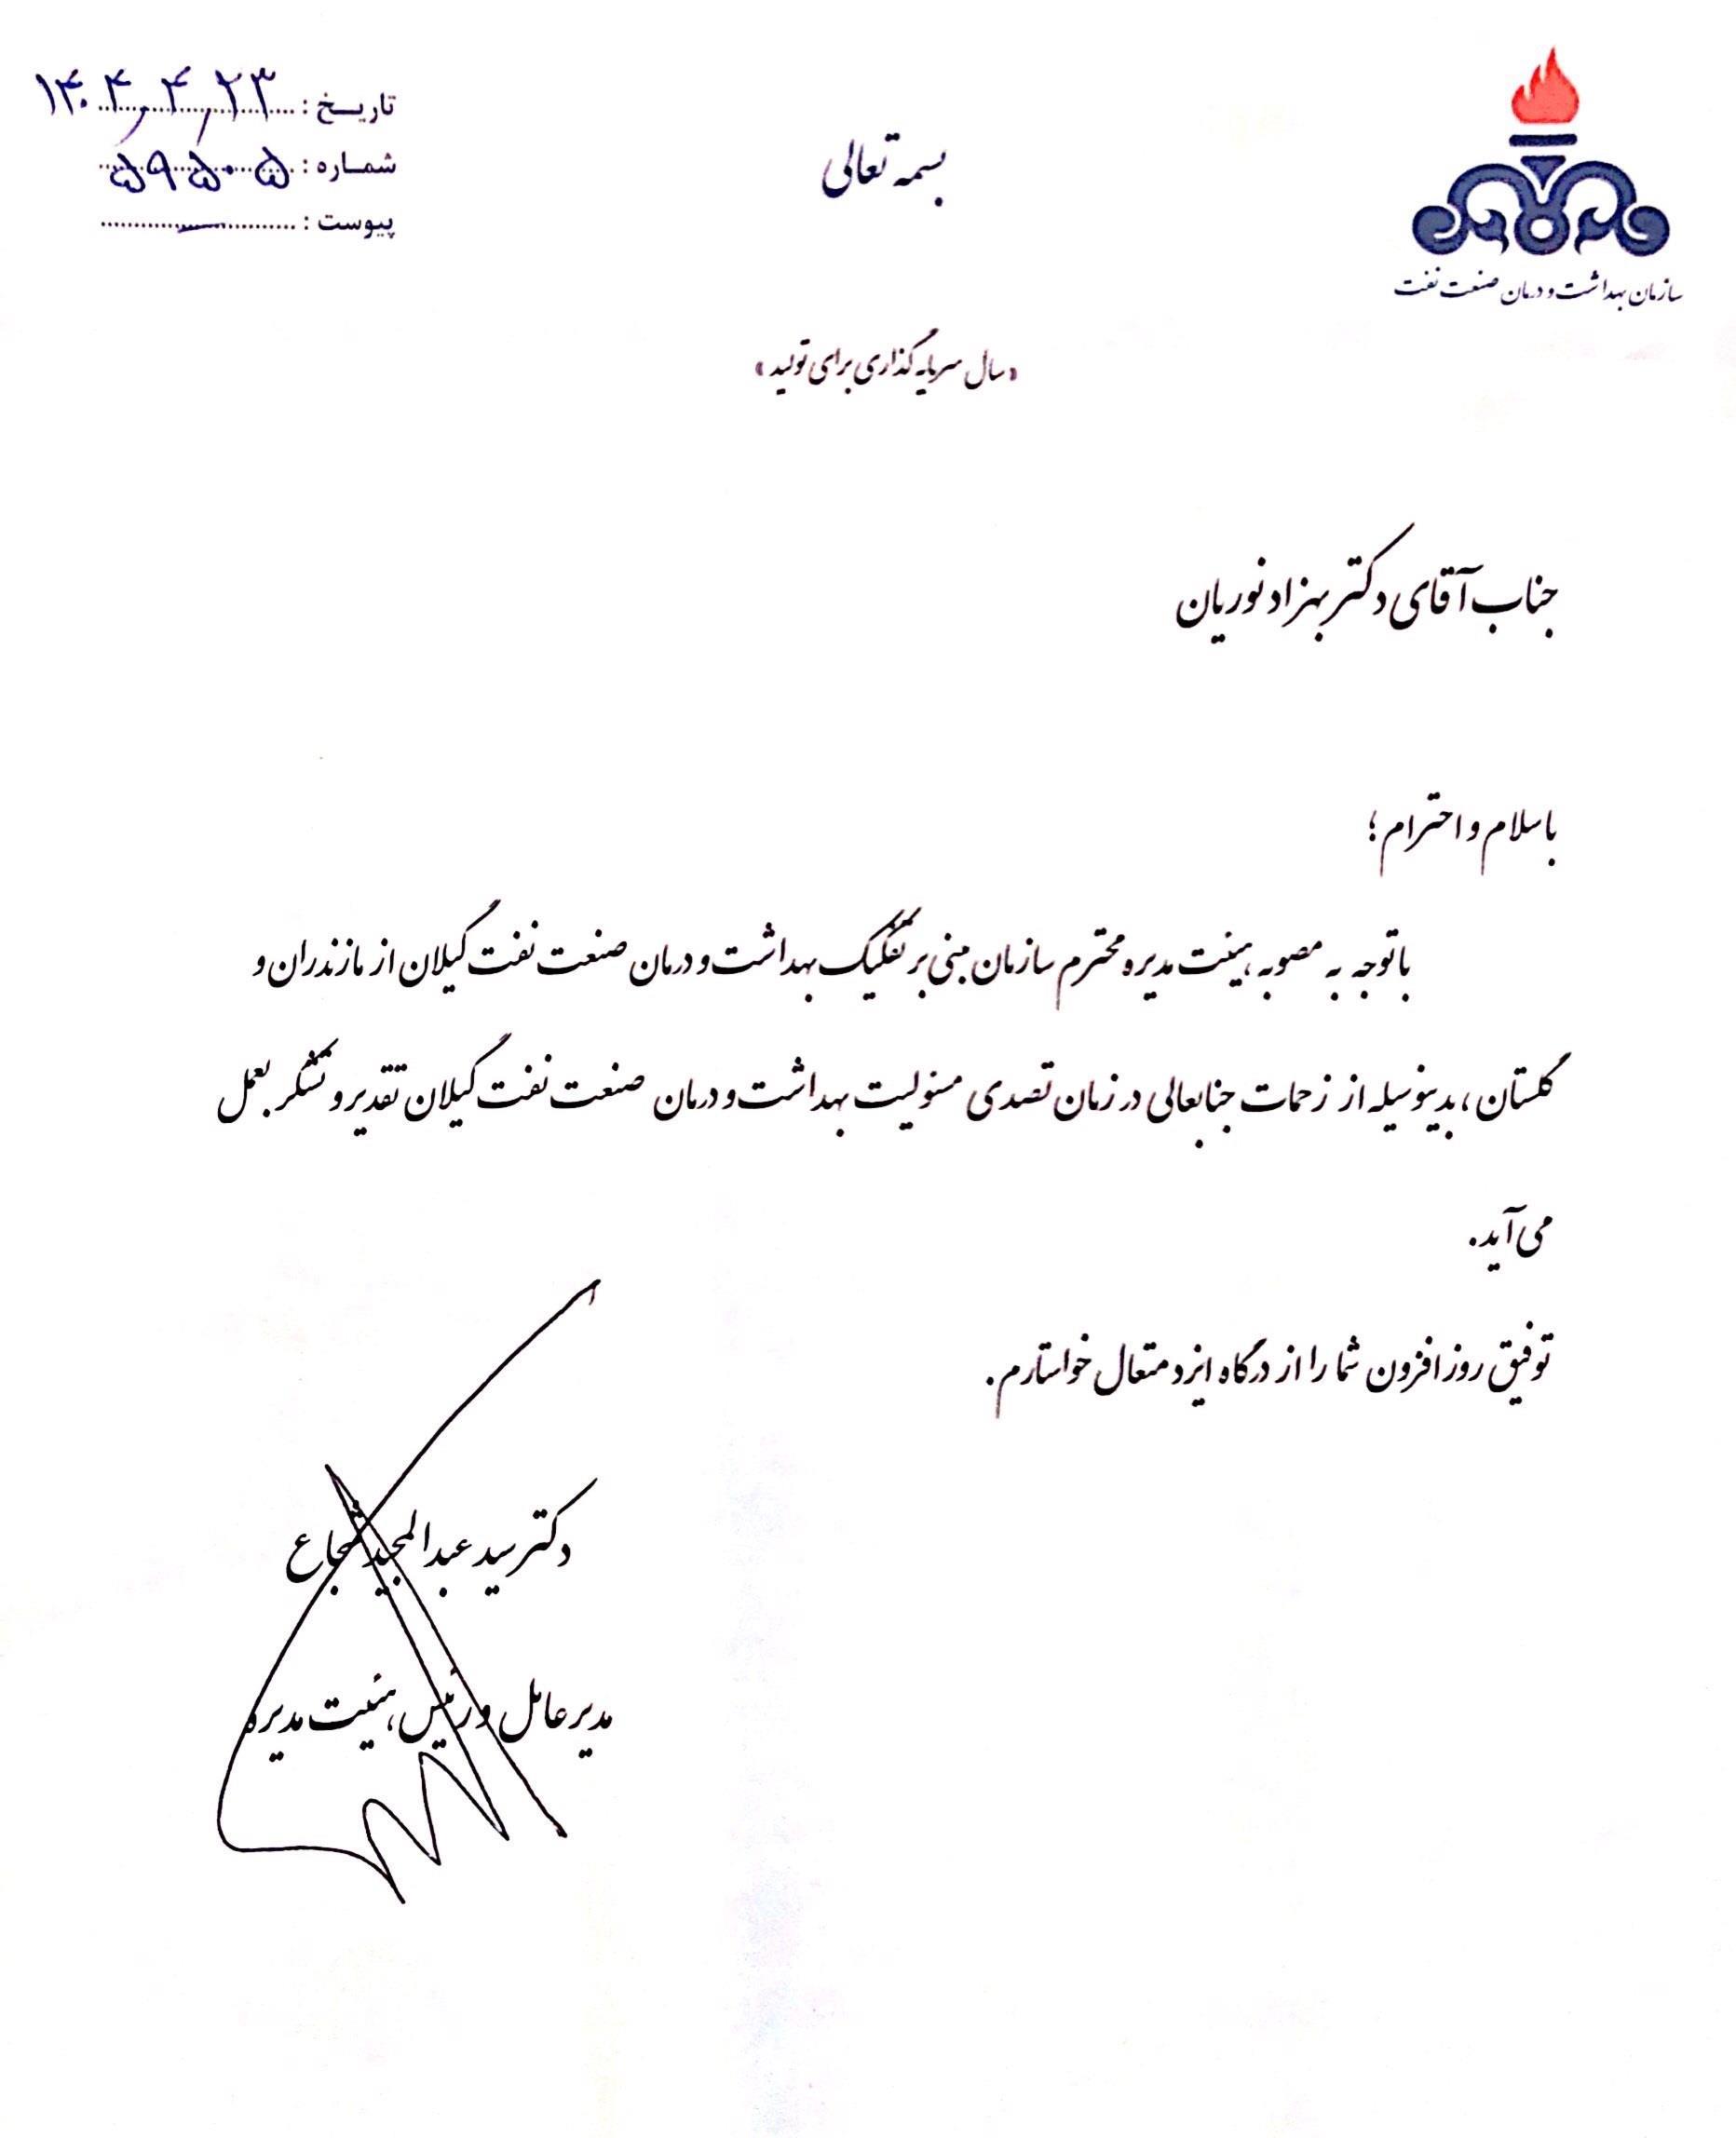 بسمه تعالی
تاریخ : ۱۴۰۴/۴/۲۳
شماره : ۵۹۵۰۵
پیوست : —
سازمان بهداشت و درمان صنعت نفت
«سال سرمایه گذاری برای تولید»
جناب آقای دکتر بهزاد نوریان
با سلام و احترام ؛
با توجه به مصوبه هیئت مدیره محترم سازمان مبنی بر تفکیک بهداشت و درمان صنعت نفت گیلان از مازندران و
گلستان ، بدینوسیله از زحمات جنابعالی در زمان تصدی مسئولیت بهداشت و درمان صنعت نفت گیلان تقدیر و تشکر بعمل
می آید.
توفیق روز افزون شما را از درگاه ایزد متعال خواستارم.
دکتر سید عبدالمجید شجاع
مدیر عامل و رئیس هیئت مدیره